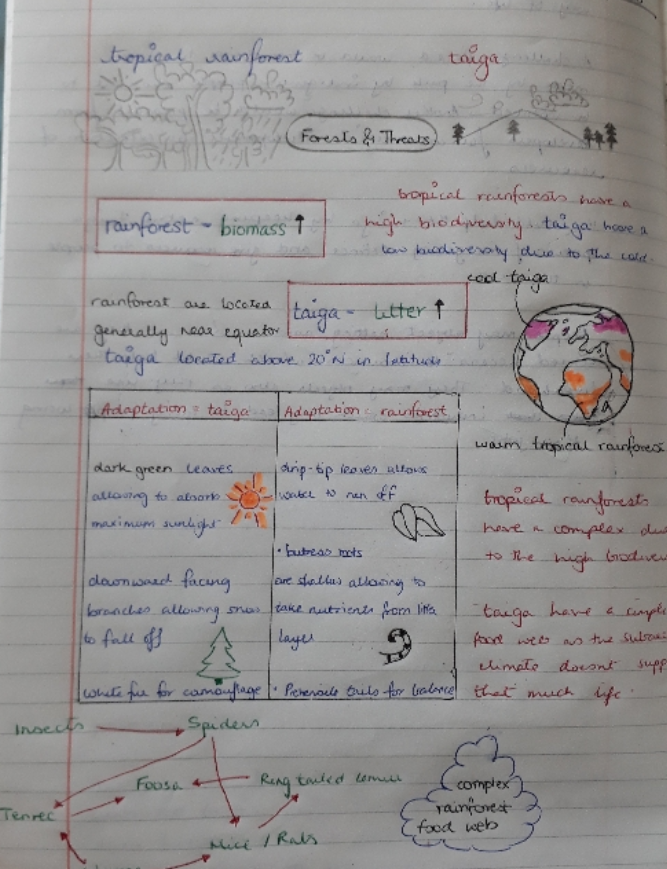 tropical rainforest
taiga
Forests & Threats
rainforest - biomass ↑
tropical rainforests have a
high biodiversity. taiga have a
low biodiversity due to the cold.
cool taiga
rainforest are located
generally near equator
taiga - litter ↑
taiga located above 20°N in latitude
warm tropical rainforest
Adaptation = taiga
dark green leaves
allowing to absorb
maximum sunlight
downward facing
branches allowing snow
to fall off
white fur for camouflage
Adaptation = rainforest
drip-tip leaves allows
water to run off
• butress roots
are shallow allowing to
take nutrients from litter
layer
• tails for balance
tropical rainforests
have a complex
to the high
taiga have a
food web as the
climate doesnt
that much life.
Insects
Spiders
Foosa
Ring tailed lemur
Tenrec
Mice / Rats
complex
rainforest
food web